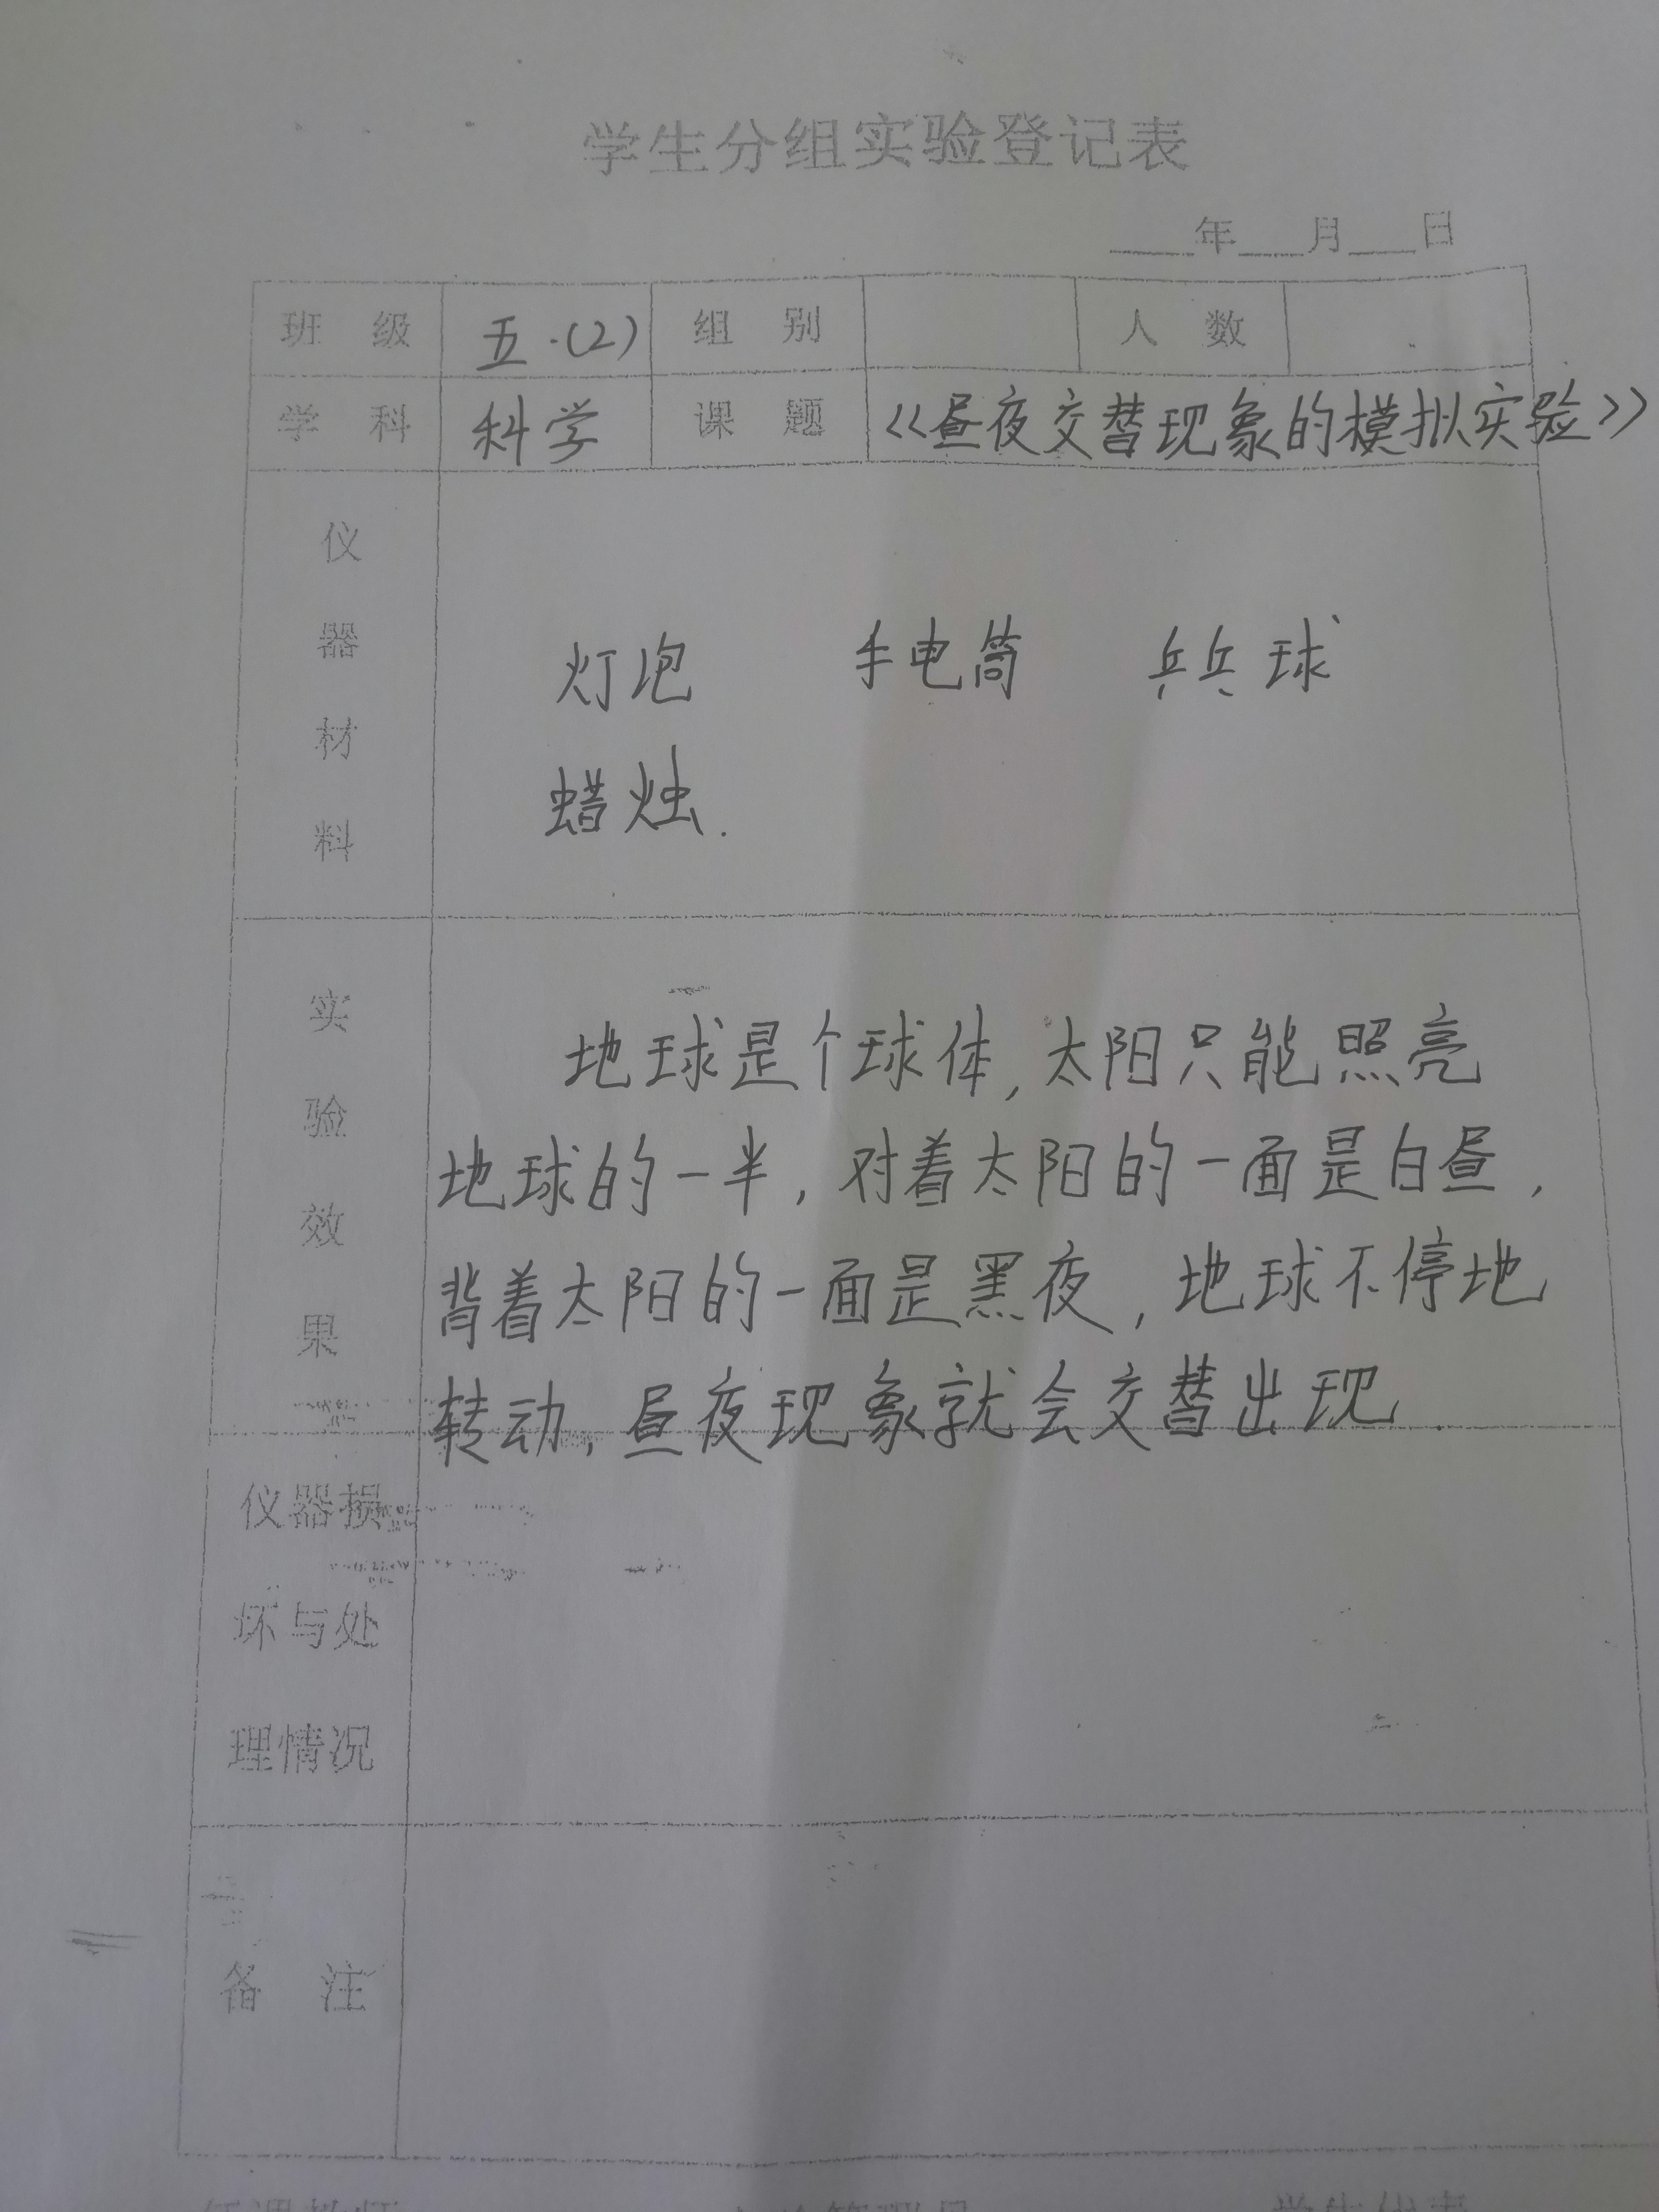 学生分组实验登记表
____年___月___日
班 级 五.(2) 组 别 人 数
学 科 科学 课 题 《昼夜交替现象的模拟实验》
仪器材料
灯泡 手电筒 乒乓球
蜡烛.
实验效果
地球是个球体,太阳只能照亮
地球的一半,对着太阳的一面是白昼,
背着太阳的一面是黑夜,地球不停地
转动,昼夜现象就会交替出现.
仪器损
坏与处
理情况
备 注